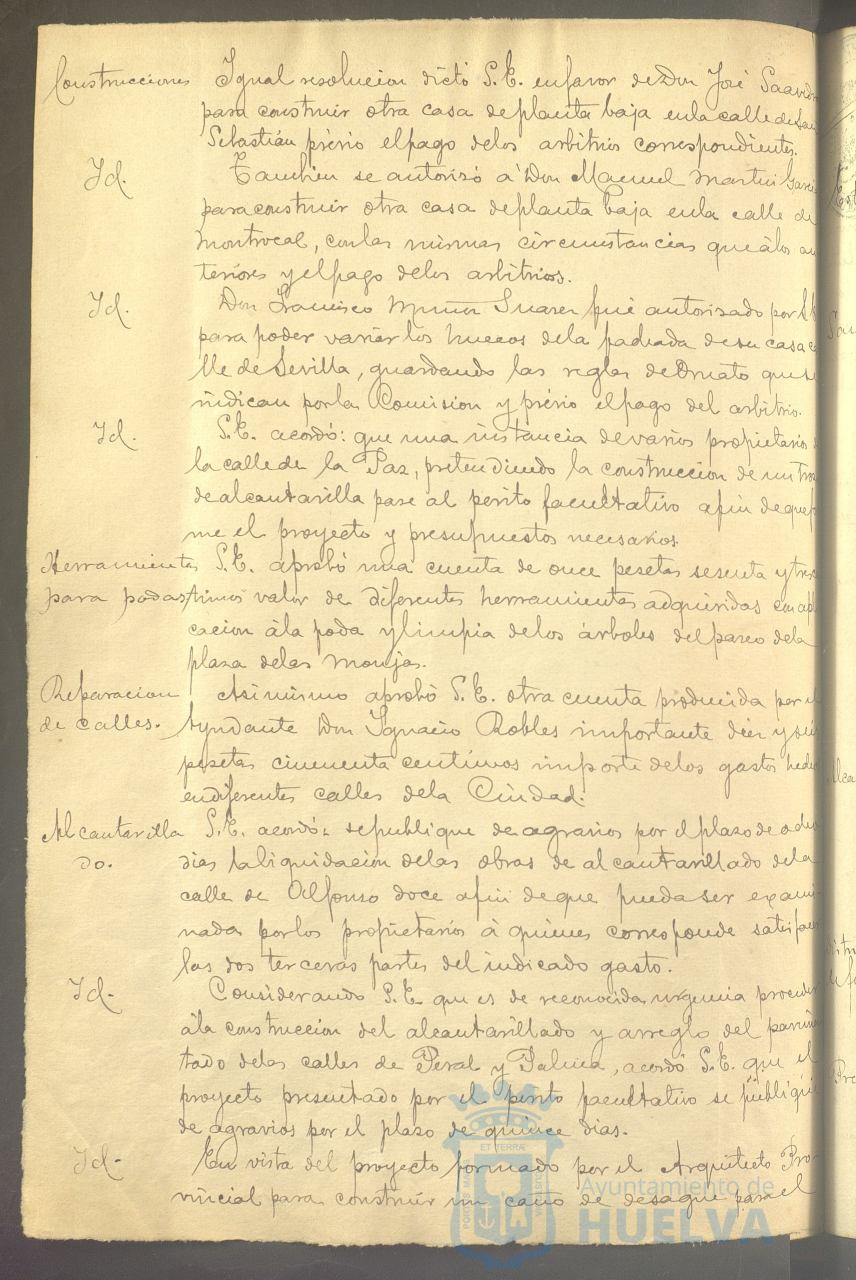 Construcciones Igual resolucion dictó S.E. en favor de Don José Saavedra
para construir otra casa de planta baja en la calle de San
Sebastián prévio el pago de los arbitrios correspondientes.
Id. Tambien se autorizó á Don Manuel Martin Garcia
para construir otra casa de planta baja en la calle de
Montrocal, con las mismas circunstancias que á los an
teriores y el pago de los arbitrios.
Id. Don Francisco Muñoz Suarez fué autorizado por S.E.
para poder variar los huecos de la fachada de su casa ca
lle de Sevilla, guardando las reglas de Ornato que se
indican por la Comision y prévio el pago del arbitrio.
Id. S.E. acordó: que una instancia de varios propietarios de
la calle de la Paz, pretendiendo la construccion de un trozo
de alcantarilla pase al perito facultativo a fin de que for
me el proyecto y presupuestos necesarios.
Herramientas S.E. aprobó una cuenta de once pesetas sesenta y tres
para podas timos valor de diferentes herramientas adquiridas con apli
cacion á la poda y limpia de los árboles del paseo de la
plaza de las Monjas.
Reparacion Asi mismo aprobó S.E. otra cuenta producida por el
de calles. Ayudante Don Ignacio Robles importante diez y seis
pesetas cincuenta centimos importe de los gastos hechos
en diferentes calles de la Ciudad.
Alcantarilla S.E. acordó: se publique de agravios por el plazo de ocho
do. dias la liquidacion de las obras de alcantarillado de la
calle de Alfonso doce a fin de que pueda ser exami
nada por los propietarios á quienes corresponde satisfacer
las dos terceras partes del indicado gasto.
Id. Considerando S.E. que es de reconocida urgencia proceder
á la construccion del alcantarillado y arreglo del pavimen
tado de las calles de Peral y Palma, acordó S.E. que el
proyecto presentado por el perito facultativo se publique
de agravios por el plazo de quince dias.
Id. En vista del proyecto formado por el Arquitecto Pro
vincial para construir un caño de desagüe para el
ET TERRÆ
Ayuntamiento de
HUELVA